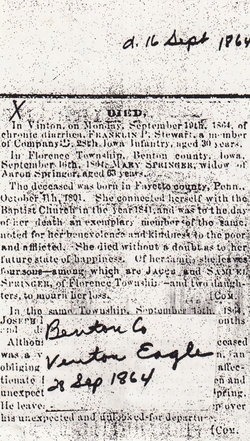 d. 16 Sept 1864
X
DIED,
In Vinton, on Monday, September 19th, 1864, of
chronic diarrhea, FRANKLIN P. Stewart, a member
of Company 28th, Iowa Infantry, aged 30 years.
In Florence Township, Benton county, Iowa,
September 16th, 1864, MARY SPRINGER, widow of
Aaron Springer, aged 63 years.
The deceased was born in Fayette county, Penn.
October 7th, 1801. She connected herself with the
Baptist Church in the year 1841, and was to the day
of her death an exemplary member of the same,
noted for her benevolence and kindness to the poor
and afflicted. She died without a doubt as to her
future state of happiness. Of her family she leaves
four sons—among which are JACOB and SAMUEL
SPRINGER, of Florence Township—and two daugh-
ters, to mourn her loss. [COM.
In the same Township, September 1864
JOSEPH
Benton Co
Vinton Eagle
28 Sep 1864
Althou deceased
was a
obliging affec-
tionate and
unexpect
He leave
his unexpected and unlooked for departure.
[COM.